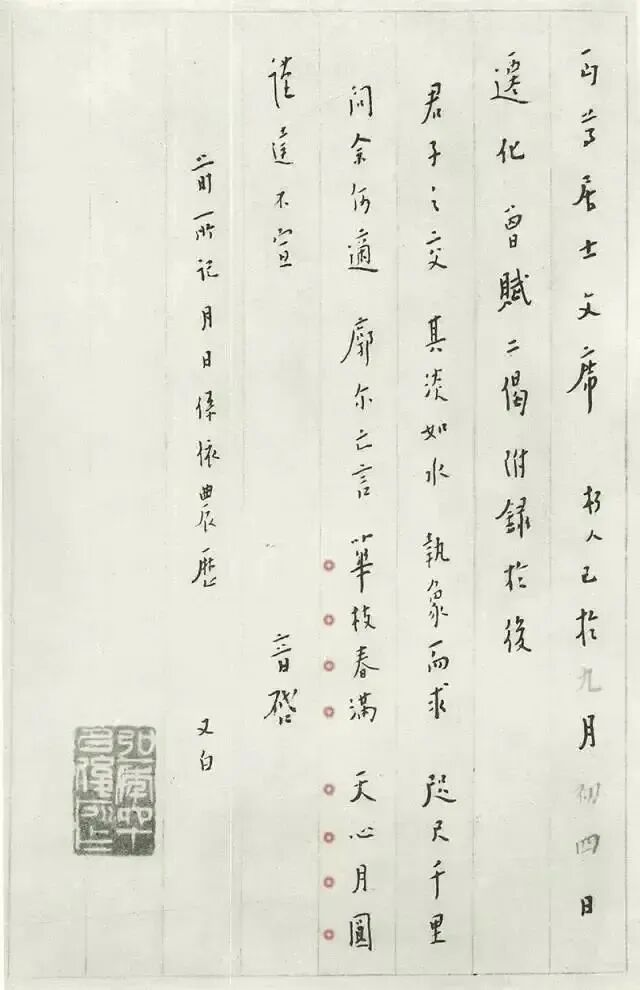 丏尊居士文席 朽人已於九月初四日
遷化 曾賦二偈 附録於後
君子之交 其淡如水 執象而求 咫尺千里
問余何適 廓尔亡言 華枝春滿 天心月圓
謹達不宣 音啓
前所記月日係依農歷 又白